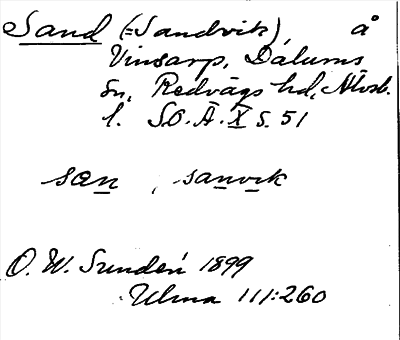 Sand (=Sandvik), å
Vinsarp, Dalums
sn, Redvägs hd, Älvsb.
l. S.O.Ä. X s. 51
san, sanvik
O. W. Sundén 1899
Ulma 111:260